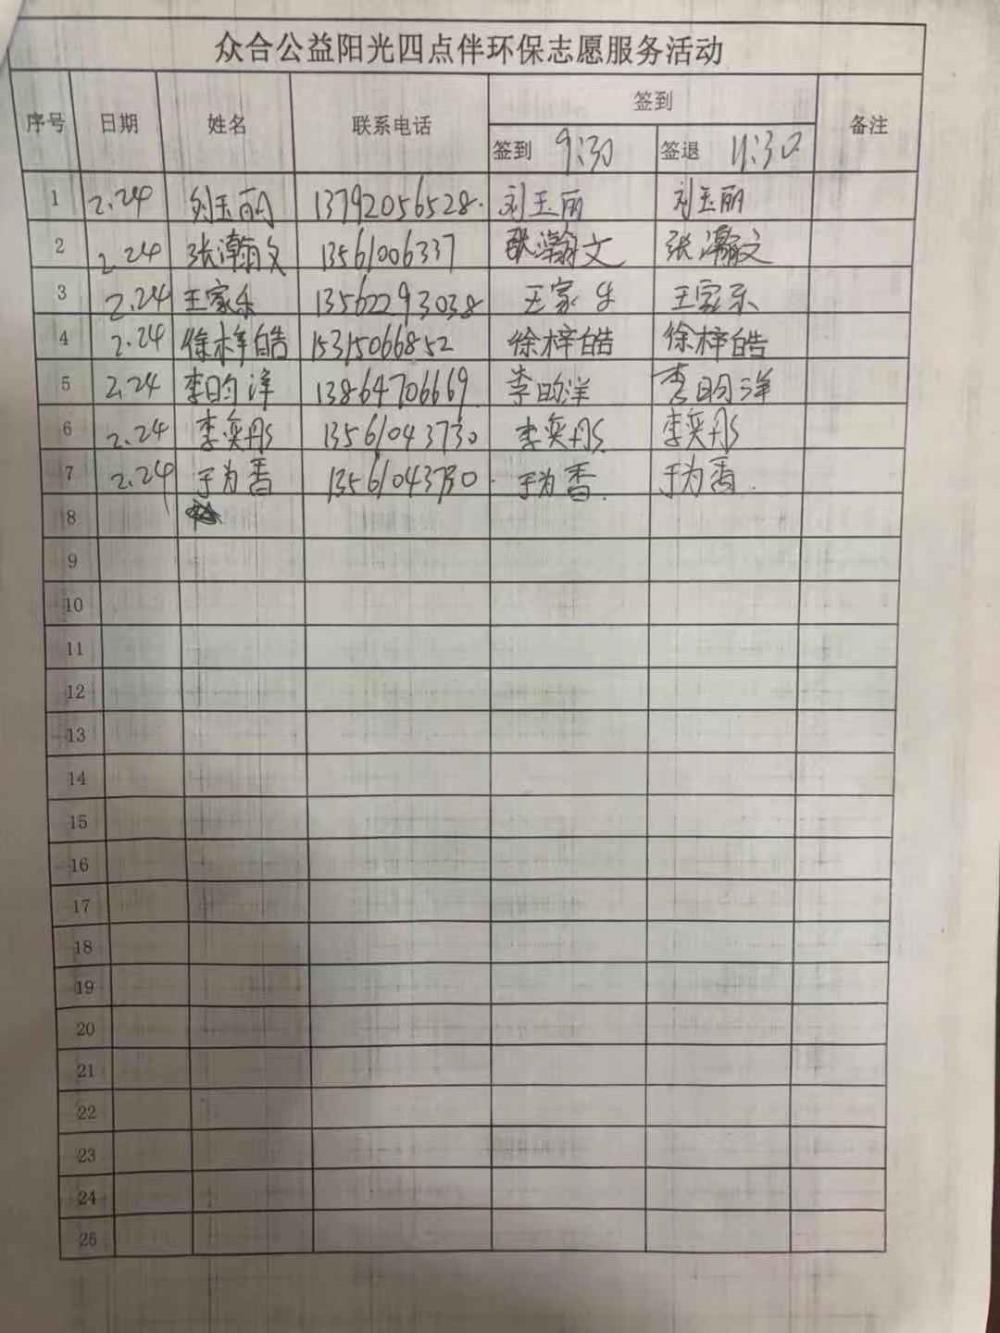 众合公益阳光四点伴环保志愿服务活动
序号 日期 姓名 联系电话 签到 备注
签到 9:30 签退 11:30
1 2.24 刘玉丽 13792056528. 刘玉丽 刘玉丽
2 2.24 张瀚文 13561006337 张瀚文 张瀚文
3 2.24 王家乐 13562293038 王家乐 王家乐
4 2.24 徐梓皓 15315066852 徐梓皓 徐梓皓
5 2.24 李昀洋 13864706669 李昀洋 李昀洋
6 2.24 李奕彤 13561043730 李奕彤 李奕彤
7 2.24 于为香 13561043730. 于为香. 于为香.
8
9
10
11
12
13
14
15
16
17
18
19
20
21
22
23
24
25